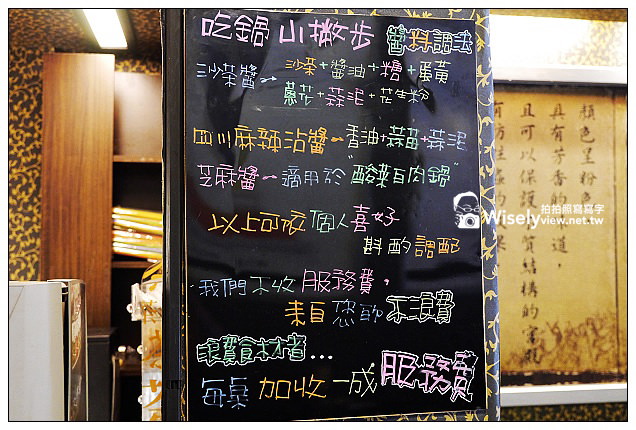 吃鍋 小撇步 醬料調法
沙茶醬→ 沙茶+醬油+糖+蛋黃
蔥花+蒜泥+花生粉
四川麻辣沾醬→香油+蒜苗+蒜泥
芝麻醬→適用於"酸菜白肉鍋"
以上可依個人喜好
斟酌調配
我們不收服務費，
來自您的不浪費
浪費食材者...
每桌加收一成服務費
Wisely 拍拍照寫寫字
view.net.tw
顏色呈粉
具有芳香
道，
且可以保護
質結構的